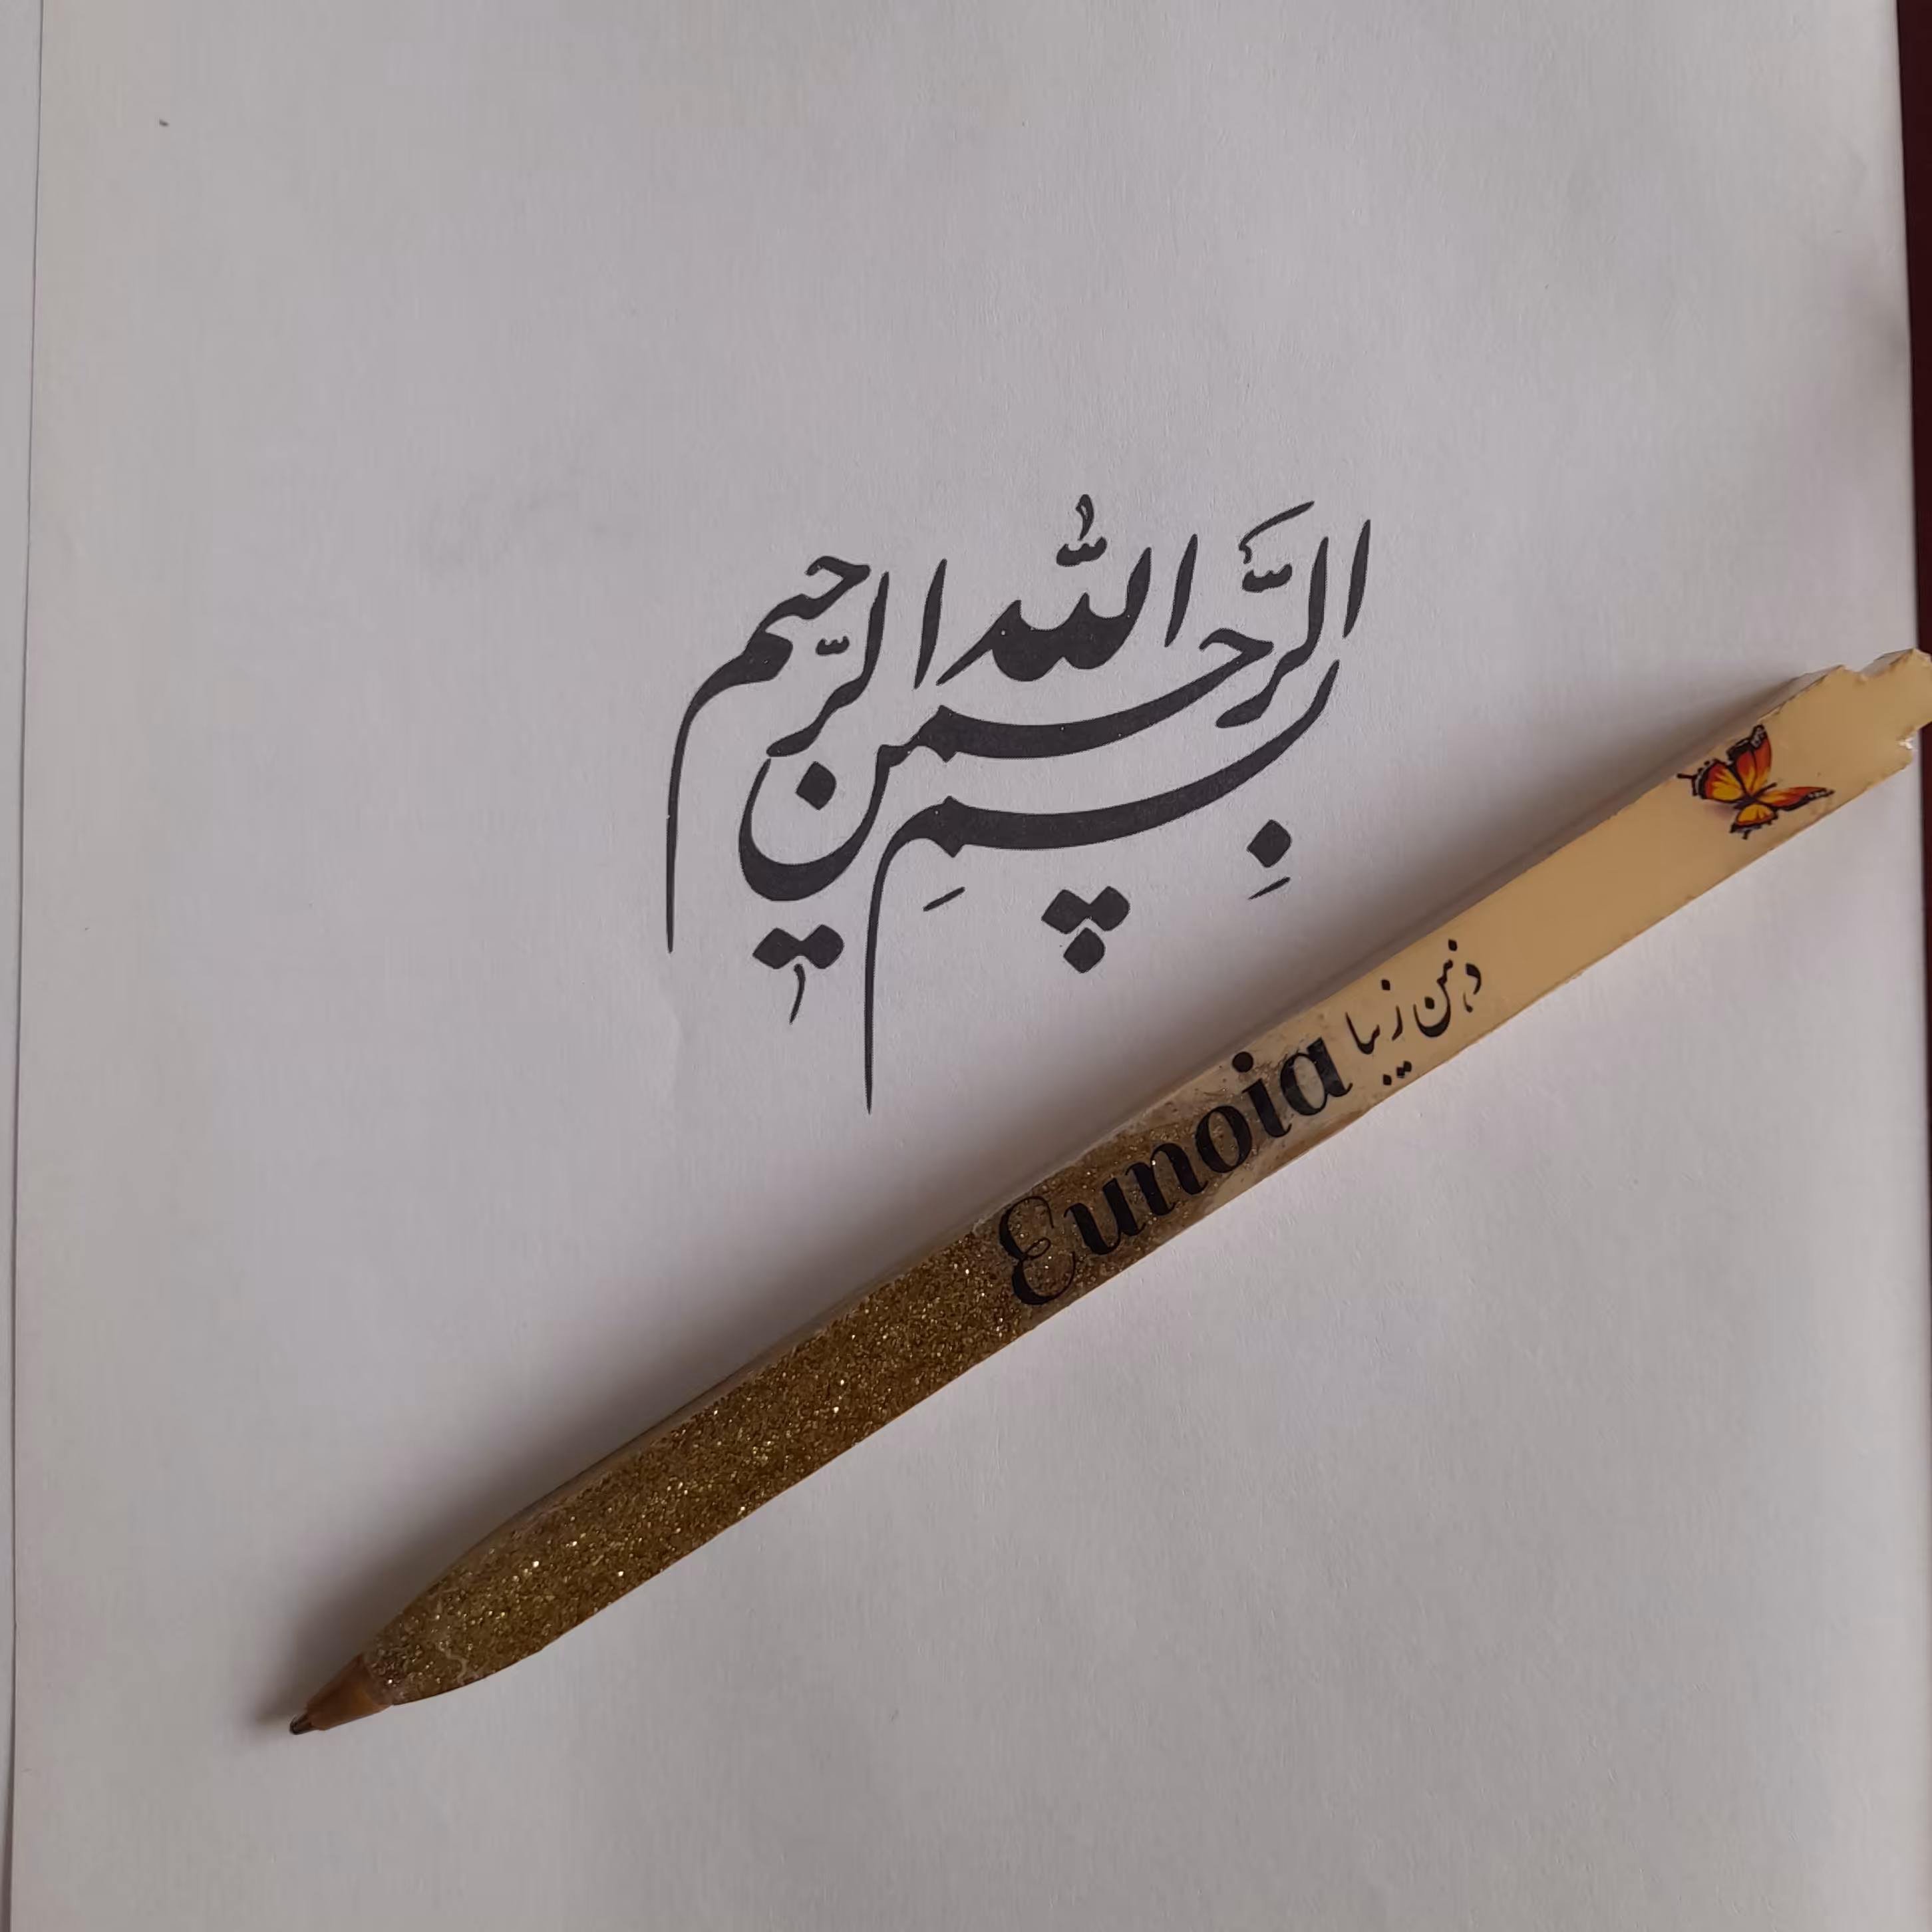 بِسمِ الله الرَّحمن الرّحیم
Eunoia
ذهن زیبا